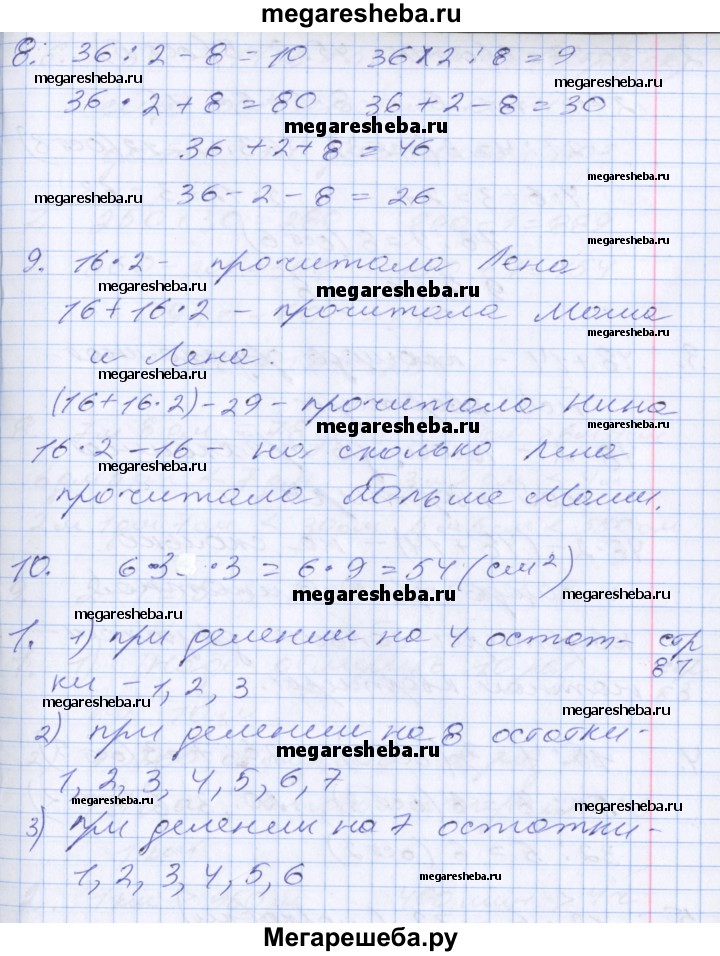 megaresheba.ru
8. 36 : 2 - 8 = 10 36 · 2 : 8 = 9
megaresheba.ru megaresheba.ru
36 · 2 + 8 = 80 36 + 2 - 8 = 30
megaresheba.ru
36 + 2 + 8 = 46
megaresheba.ru
36 - 2 - 8 = 26
megaresheba.ru
megaresheba.ru
9. 16 · 2 - прочитала Лена
megaresheba.ru megaresheba.ru
16 + 16 · 2 - прочитала Маша
megaresheba.ru
и Лена.
megaresheba.ru
(16 + 16 · 2) - 29 - прочитала Нина
megaresheba.ru
16 · 2 - 16 - на сколько Лена
megaresheba.ru megaresheba.ru
прочитала больше Маши.
10. 6 · 3 · 3 = 6 · 9 = 54 (см²)
megaresheba.ru megaresheba.ru
megaresheba.ru
1. 1) при делении на 4 остат- стр
ки - 1, 2, 3 81
megaresheba.ru megaresheba.ru
2) при делении на 8 остатки -
megaresheba.ru
1, 2, 3, 4, 5, 6, 7
megaresheba.ru megaresheba.ru
3) при делении на 7 остатки -
1, 2, 3, 4, 5, 6
megaresheba.ru
Мегарешеба.ру